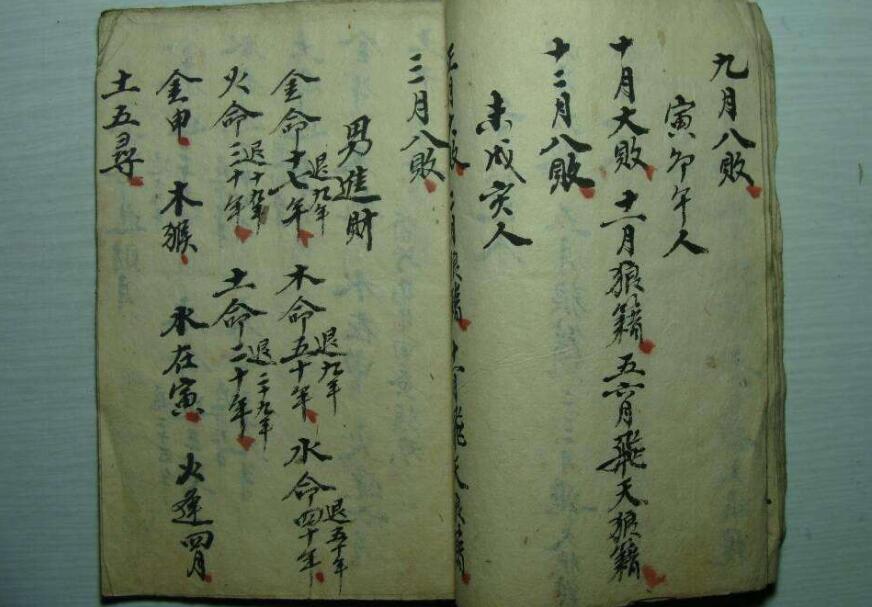 九月八敗
寅卯午人
十月大敗 十一月狼籍 五六月飛天狼籍
十二月八敗
未戌亥人
正月大敗 二月狼籍 十一月飛天狼籍
三月八敗
男進財
金命十七年 退九年 木命五十年 退九年 水命四十年 退五十年
火命三十年 退十九年 土命二十年 退二十九年
金申 木猴 水在寅 火逢四月
土五尋